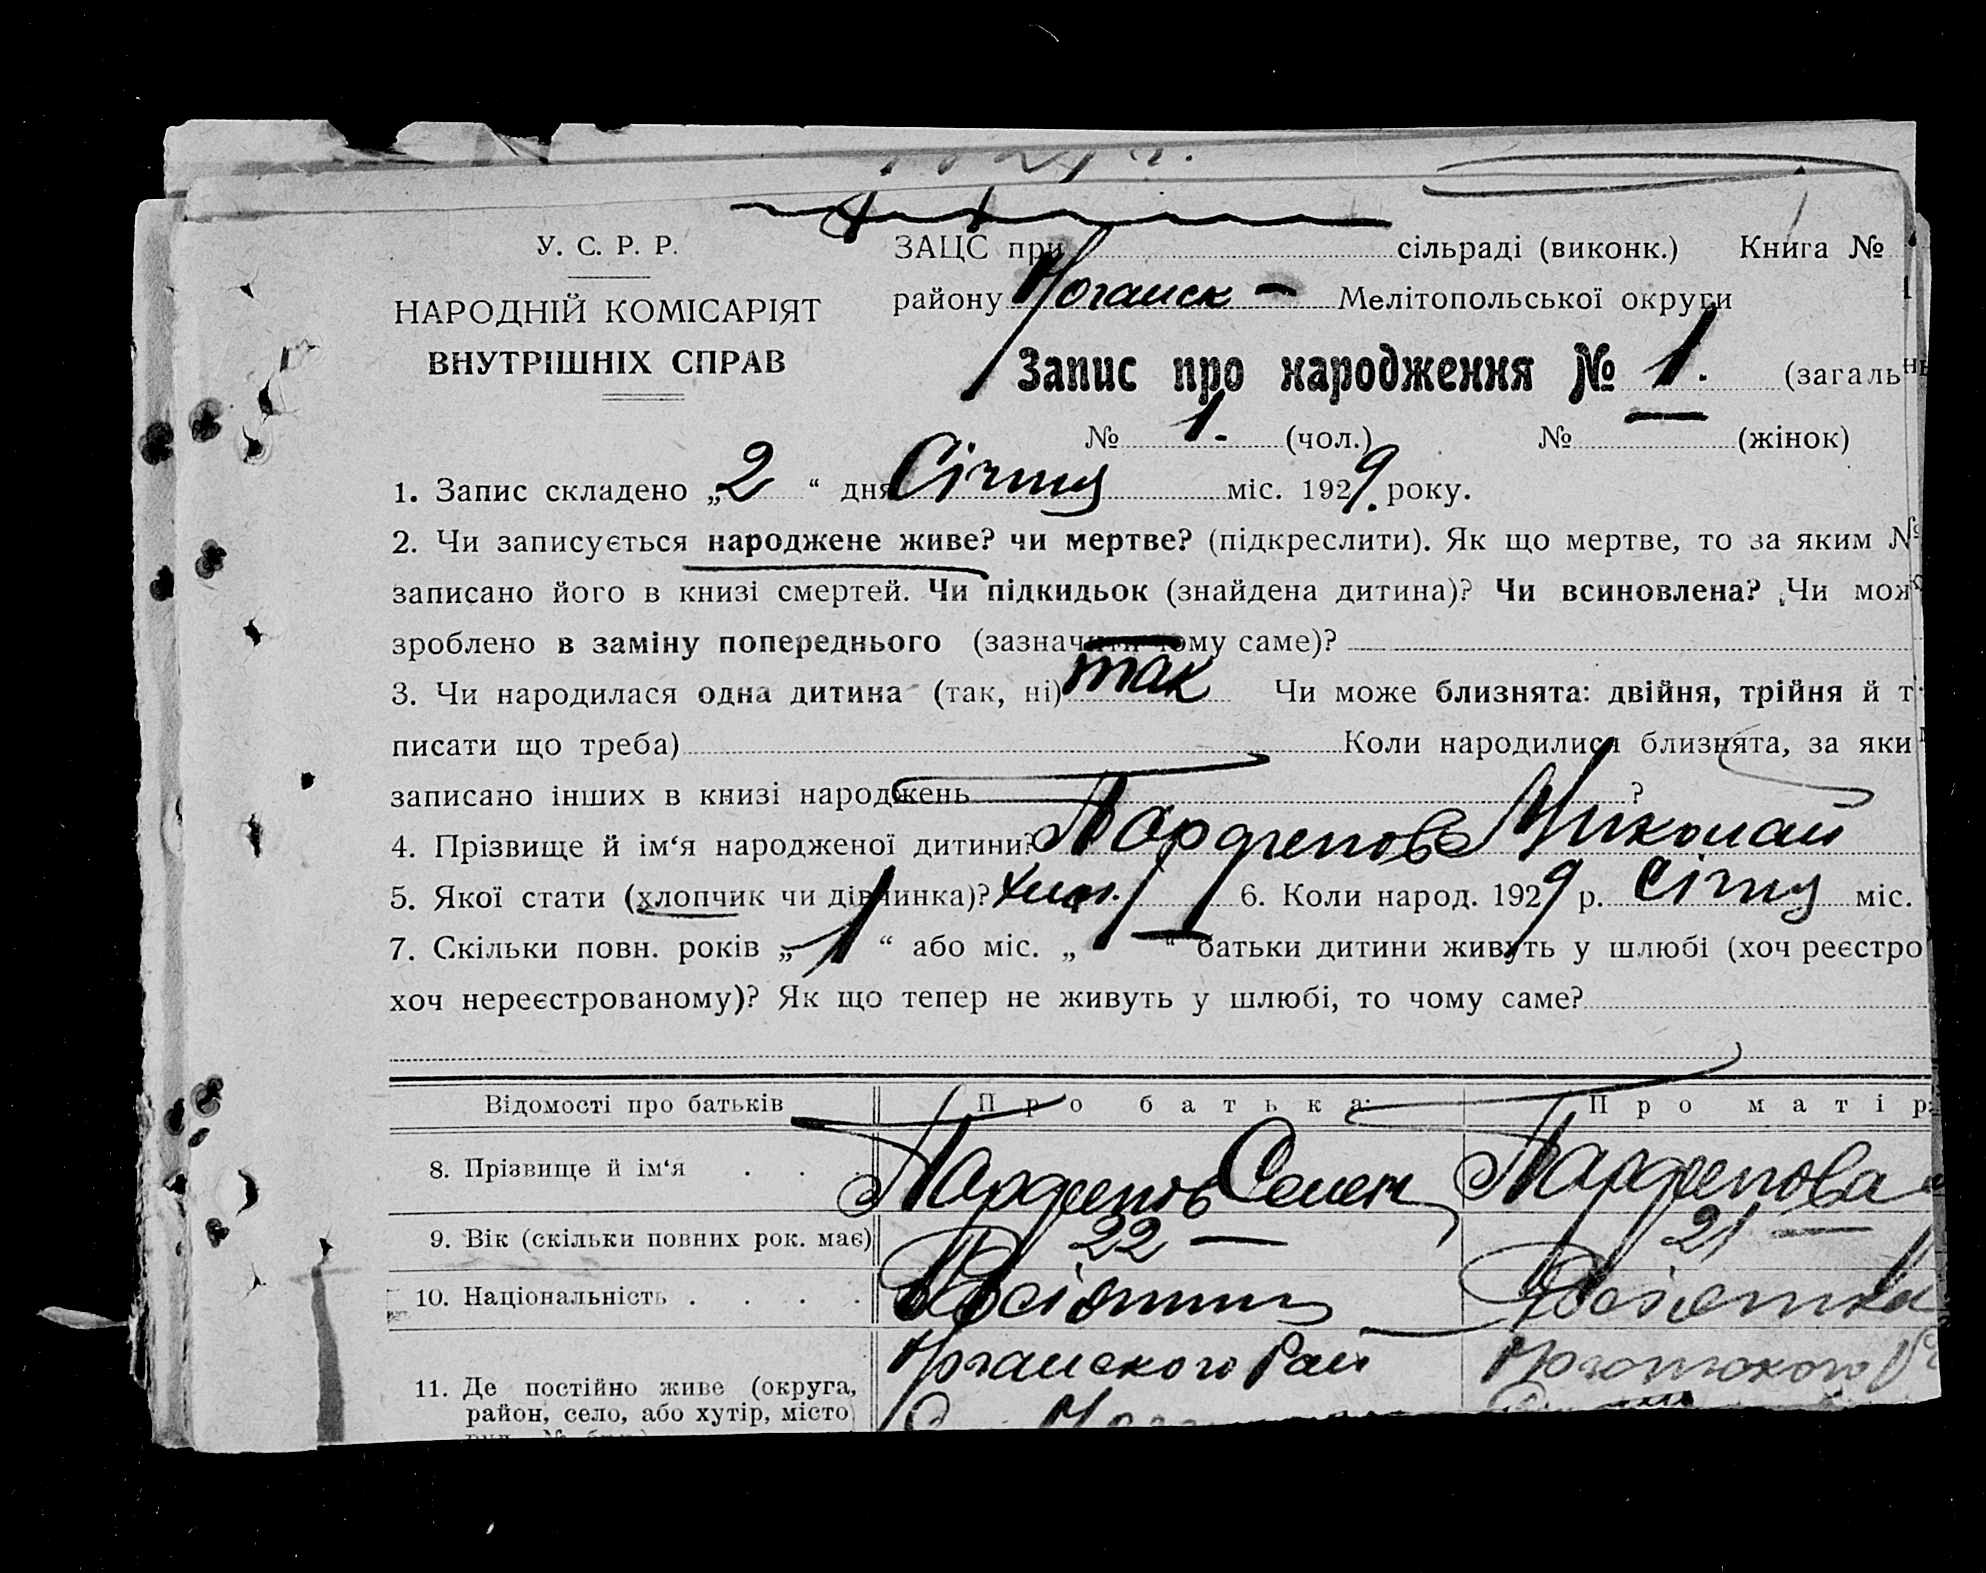 У. С. Р. Р.
НАРОДНІЙ КОМІСАРІЯТ
ВНУТРІШНІХ СПРАВ
ЗАЦС при сільраді (виконк.) Книга №
району Ногайск - Мелітопольської округи
Запис про народження № 1. (загальн
№ 1. - (чол.) № — (жінок)
1. Запис складено „2“ дня Січня міс. 1929. року.
2. Чи записується народжене живе? чи мертве? (підкреслити). Як що мертве, то за яким №
записано його в книзі смертей. Чи підкидьок (знайдена дитина)? Чи всиновлена? Чи мож
зроблено в заміну попереднього (зазначити чому саме)?
3. Чи народилася одна дитина (так, ні) так Чи може близнята: двійня, трійня й т
писати що треба) Коли народилися близнята, за яки
записано інших в книзі народжень ?
4. Прізвище й ім‘я народженої дитини? Парфенов Николай
5. Якої стати (хлопчик чи дівчинка)? хлоп. 6. Коли народ. 1929 р. Січня міс.
7. Скільки повн. років „1“ або міс. „ “ батьки дитини живуть у шлюбі (хоч реєстро
хоч нереєстрованому)? Як що тепер не живуть у шлюбі, то чому саме?
Відомості про батьків Про батька: Про матір:
8. Прізвище й ім‘я . . . Парфенов Семен Парфенова
9. Вік (скільки повних рок. має) 22 — 21 —
10. Національність . . . .
11. Де постійно живе (округа, Ногайского Рай Ногайского
район, село, або хутір, місто